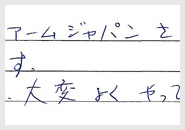 アームジャパンを
す。
、大変よくやって